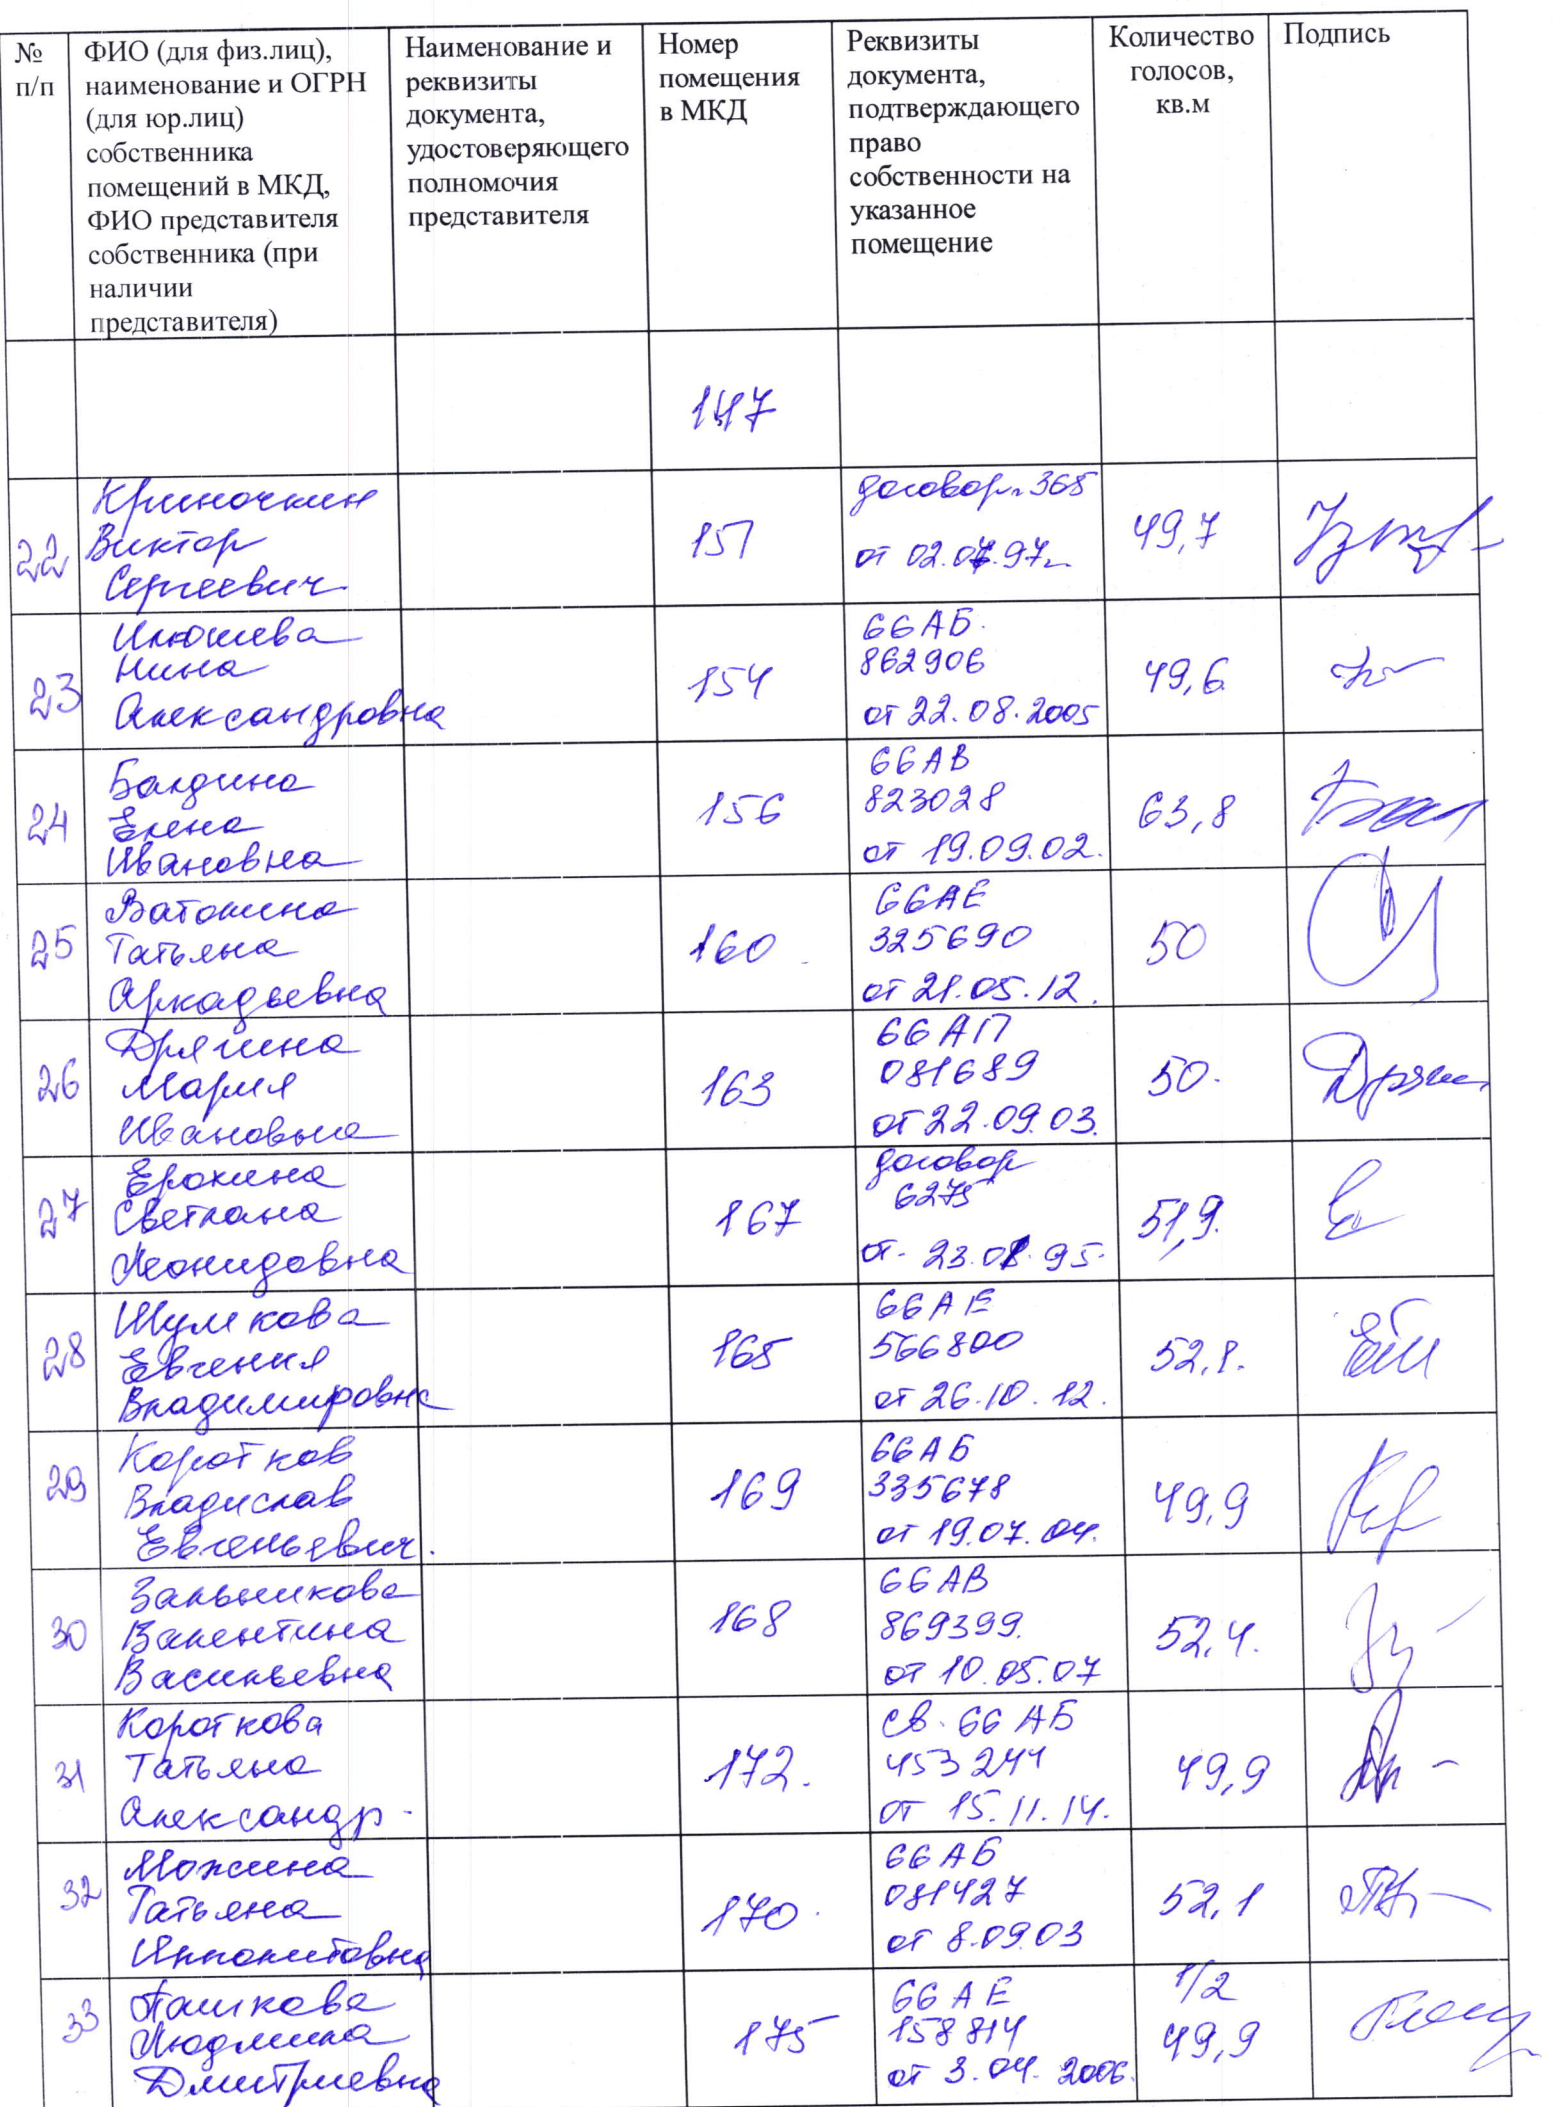 №
п/п
ФИО (для физ.лиц),
наименование и ОГРН
(для юр.лиц)
собственника
помещений в МКД,
ФИО представителя
собственника (при
наличии
представителя)
Наименование и
реквизиты
документа,
удостоверяющего
полномочия
представителя
Номер
помещения
в МКД
Реквизиты
документа,
подтверждающего
право
собственности на
указанное
помещение
Количество
голосов,
кв.м
Подпись
147
22
Криночкин
Виктор
Сергеевич
151
договор 368
от 02.07.97г.
49,7
23
Илюшева
Нина
Александровна
154
66 АБ
862906
от 22.08.2005
49,6
24
Балдина
Елена
Ивановна
156
66 АВ
823028
от 19.09.02.
63,8
25
Ватолина
Татьяна
Аркадьевна
160
66 АЕ
325690
от 21.05.12.
50
26
Дрягина
Мария
Ивановна
163
66 АП
081689
от 22.09.03.
50
27
Ерохина
Светлана
Леонидовна
167
договор
6275
от 23.08.95
51,9
28
Шумкова
Евгения
Владимировна
165
66 АЕ
566800
от 26.10.12.
52,8.
29
Коротков
Владислав
Евгеньевич.
169
66 АБ
335678
от 19.07.04.
49,9
30
Валентина
Васильевна
168
66 АВ
869399.
от 10.05.07
52,4.
31
Короткова
Татьяна
Александр.
172.
св. 66 АБ
453244
от 15.11.14.
49,9
32
Можина
Татьяна
Ипполитовна
170
66 АБ
081427
от 8.09.03
52,1
33
Пашкова
Людмила
Дмитриевна
175
66 АЕ
158814
от 3.04.2006.
1/2
49,9